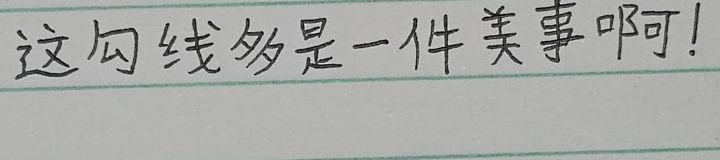 这勾线多是一件美事啊!